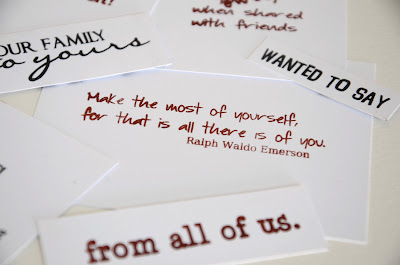 when shared
with friends
OUR FAMILY
to yours
WANTED TO SAY
Make the most of yourself,
for that is all there is of you.
Ralph Waldo Emerson
from all of us.